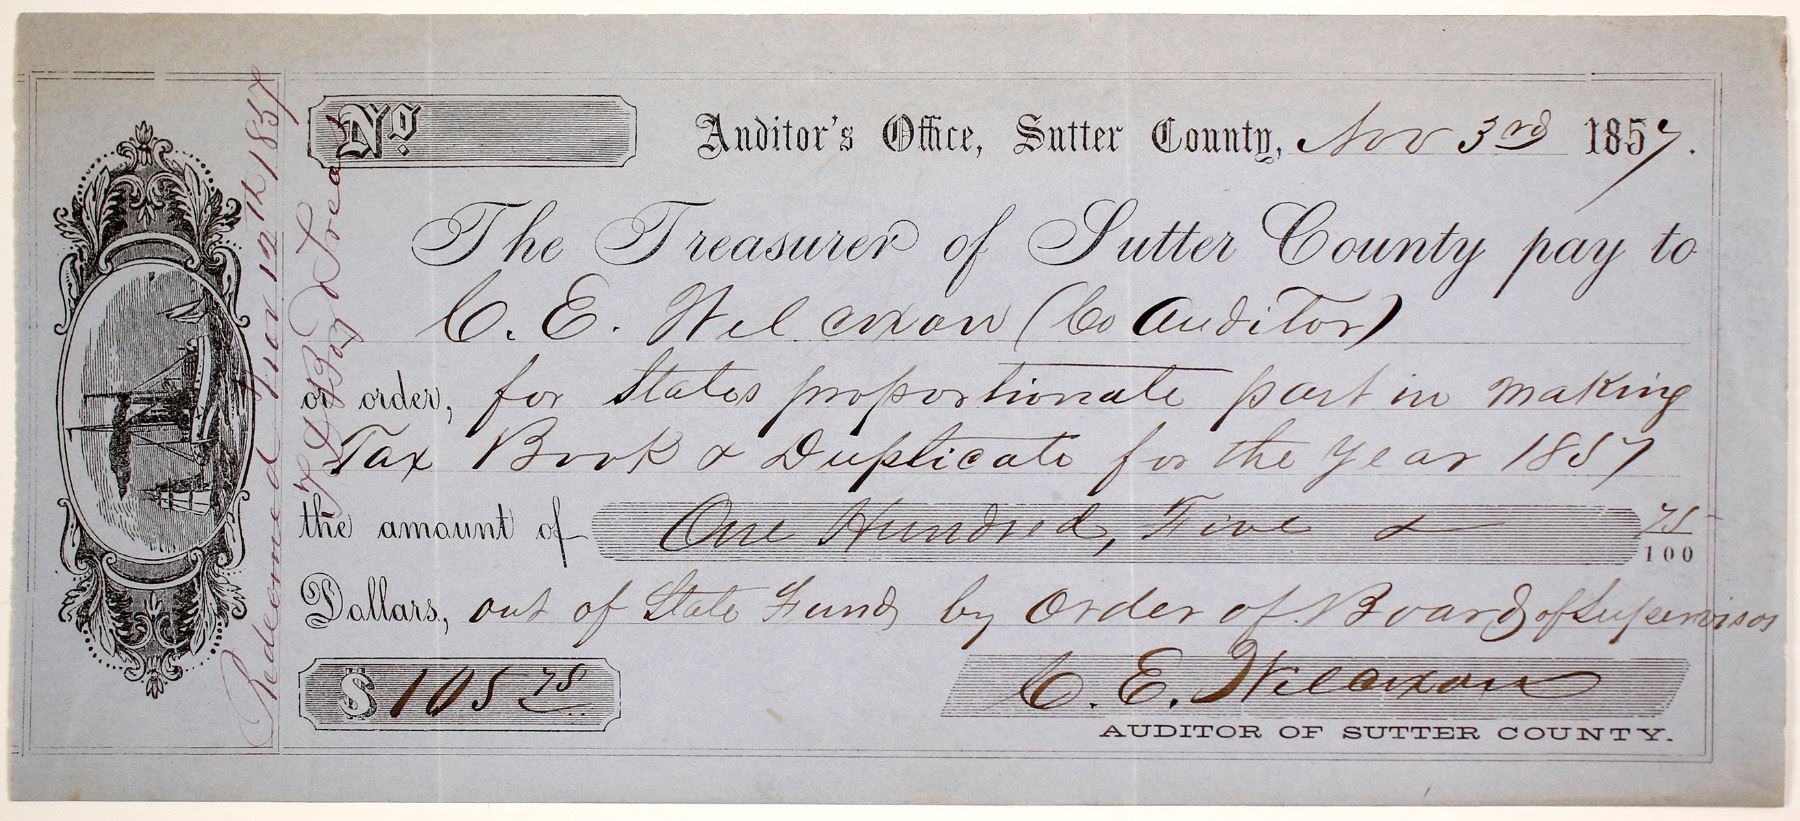 Nº
Auditor's Office, Sutter County, Nov 3rd 1857.
The Treasurer of Sutter County pay to
C. E. Wilcoxon (Co Auditor)
or order, for States proportionate part in making
Tax Book & Duplicate for the year 1857
the amount of One Hundred, Five & 75/100
Dollars, out of State Fund by Order of Board of Supervisos
$ 105 75
C. E. Wilcoxon
AUDITOR OF SUTTER COUNTY.
Redeemed Nov 12th 1857
Treas